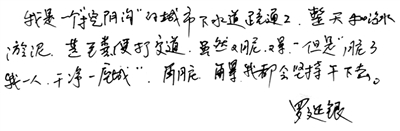 我是一个“掏阴沟”的城市下水道疏通工，整天和污水
淤泥，甚至粪便打交道。虽然又脏，又累，但是“脏了
我一人，干净一座城”，再脏，再累我都会坚持干下去。
罗延银